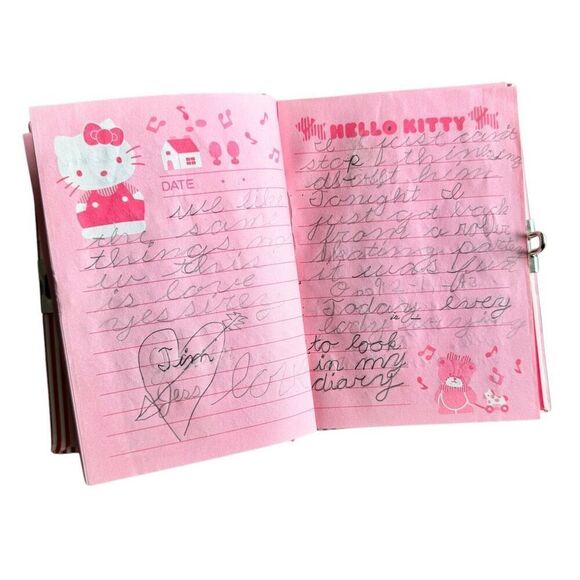 DATE
we like
the same
things now
this
is love
yes siree
Tim
Jess
love
HELLO KITTY
I just can't
stop thinking
about him
Tonight I
just got back
from a roller
skating party
it was fun
Today every
body is trying
to look
in my
diary